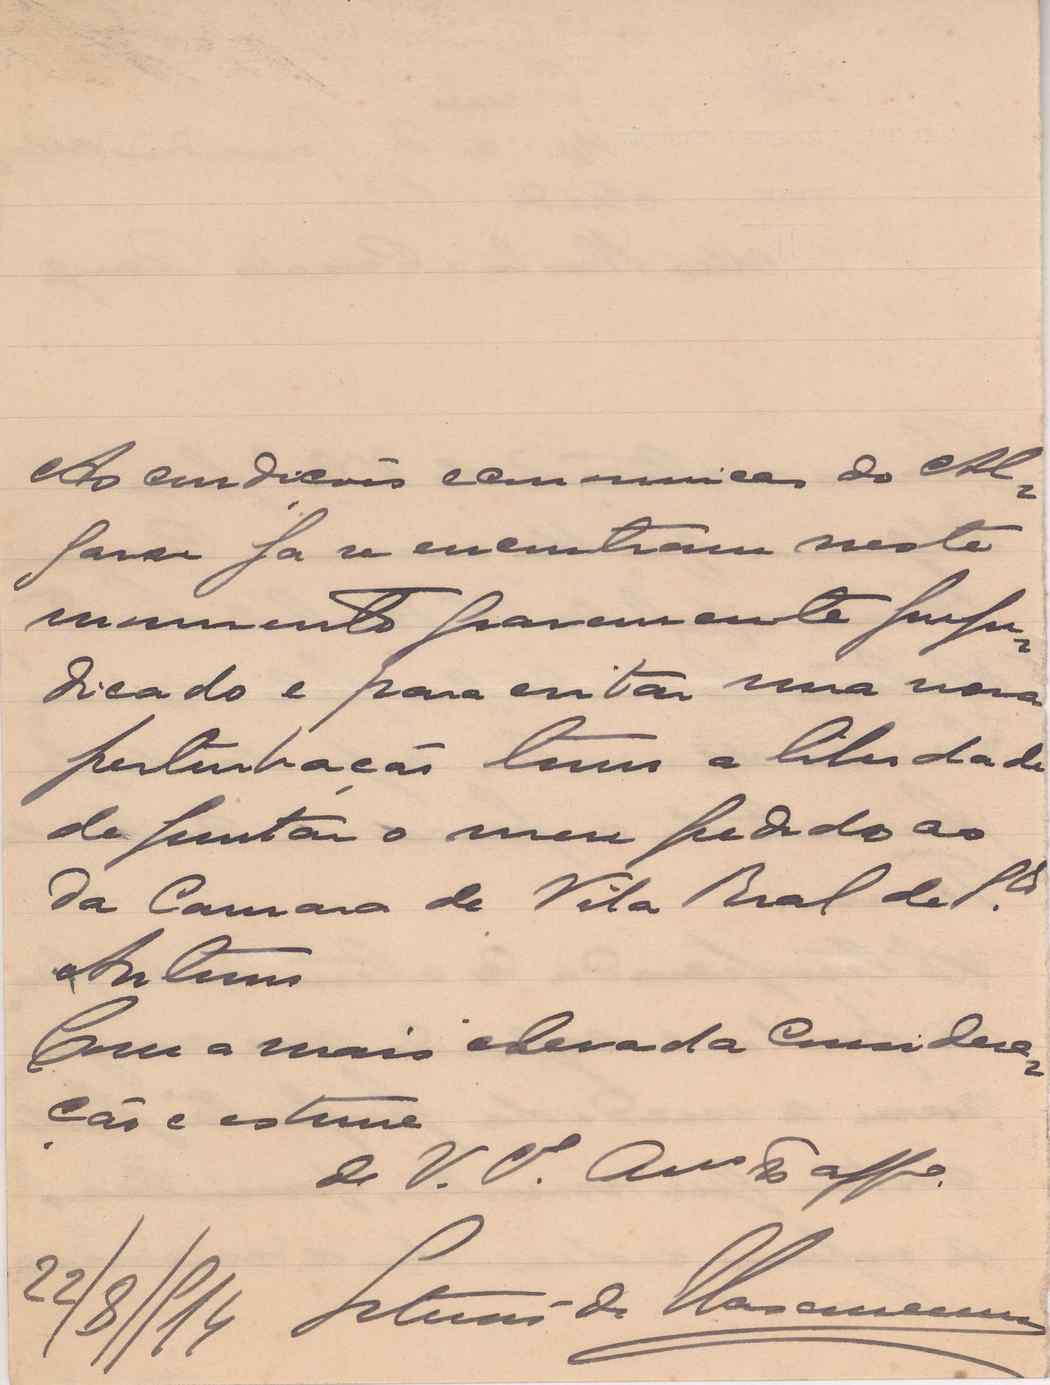 As condições economicas do Al-
garve ja se encontram neste
momento gravemente preju-
dicado e para evitar uma nova
perturbação tomo a liberdade
de juntar o meu pedido ao
da Camara de Vila Real de S.to
Antonio
Com a mais elevada considera-
ção e estima
de V. Ex.ª Am.º to affo.
22/8/914 de Vasconcellos